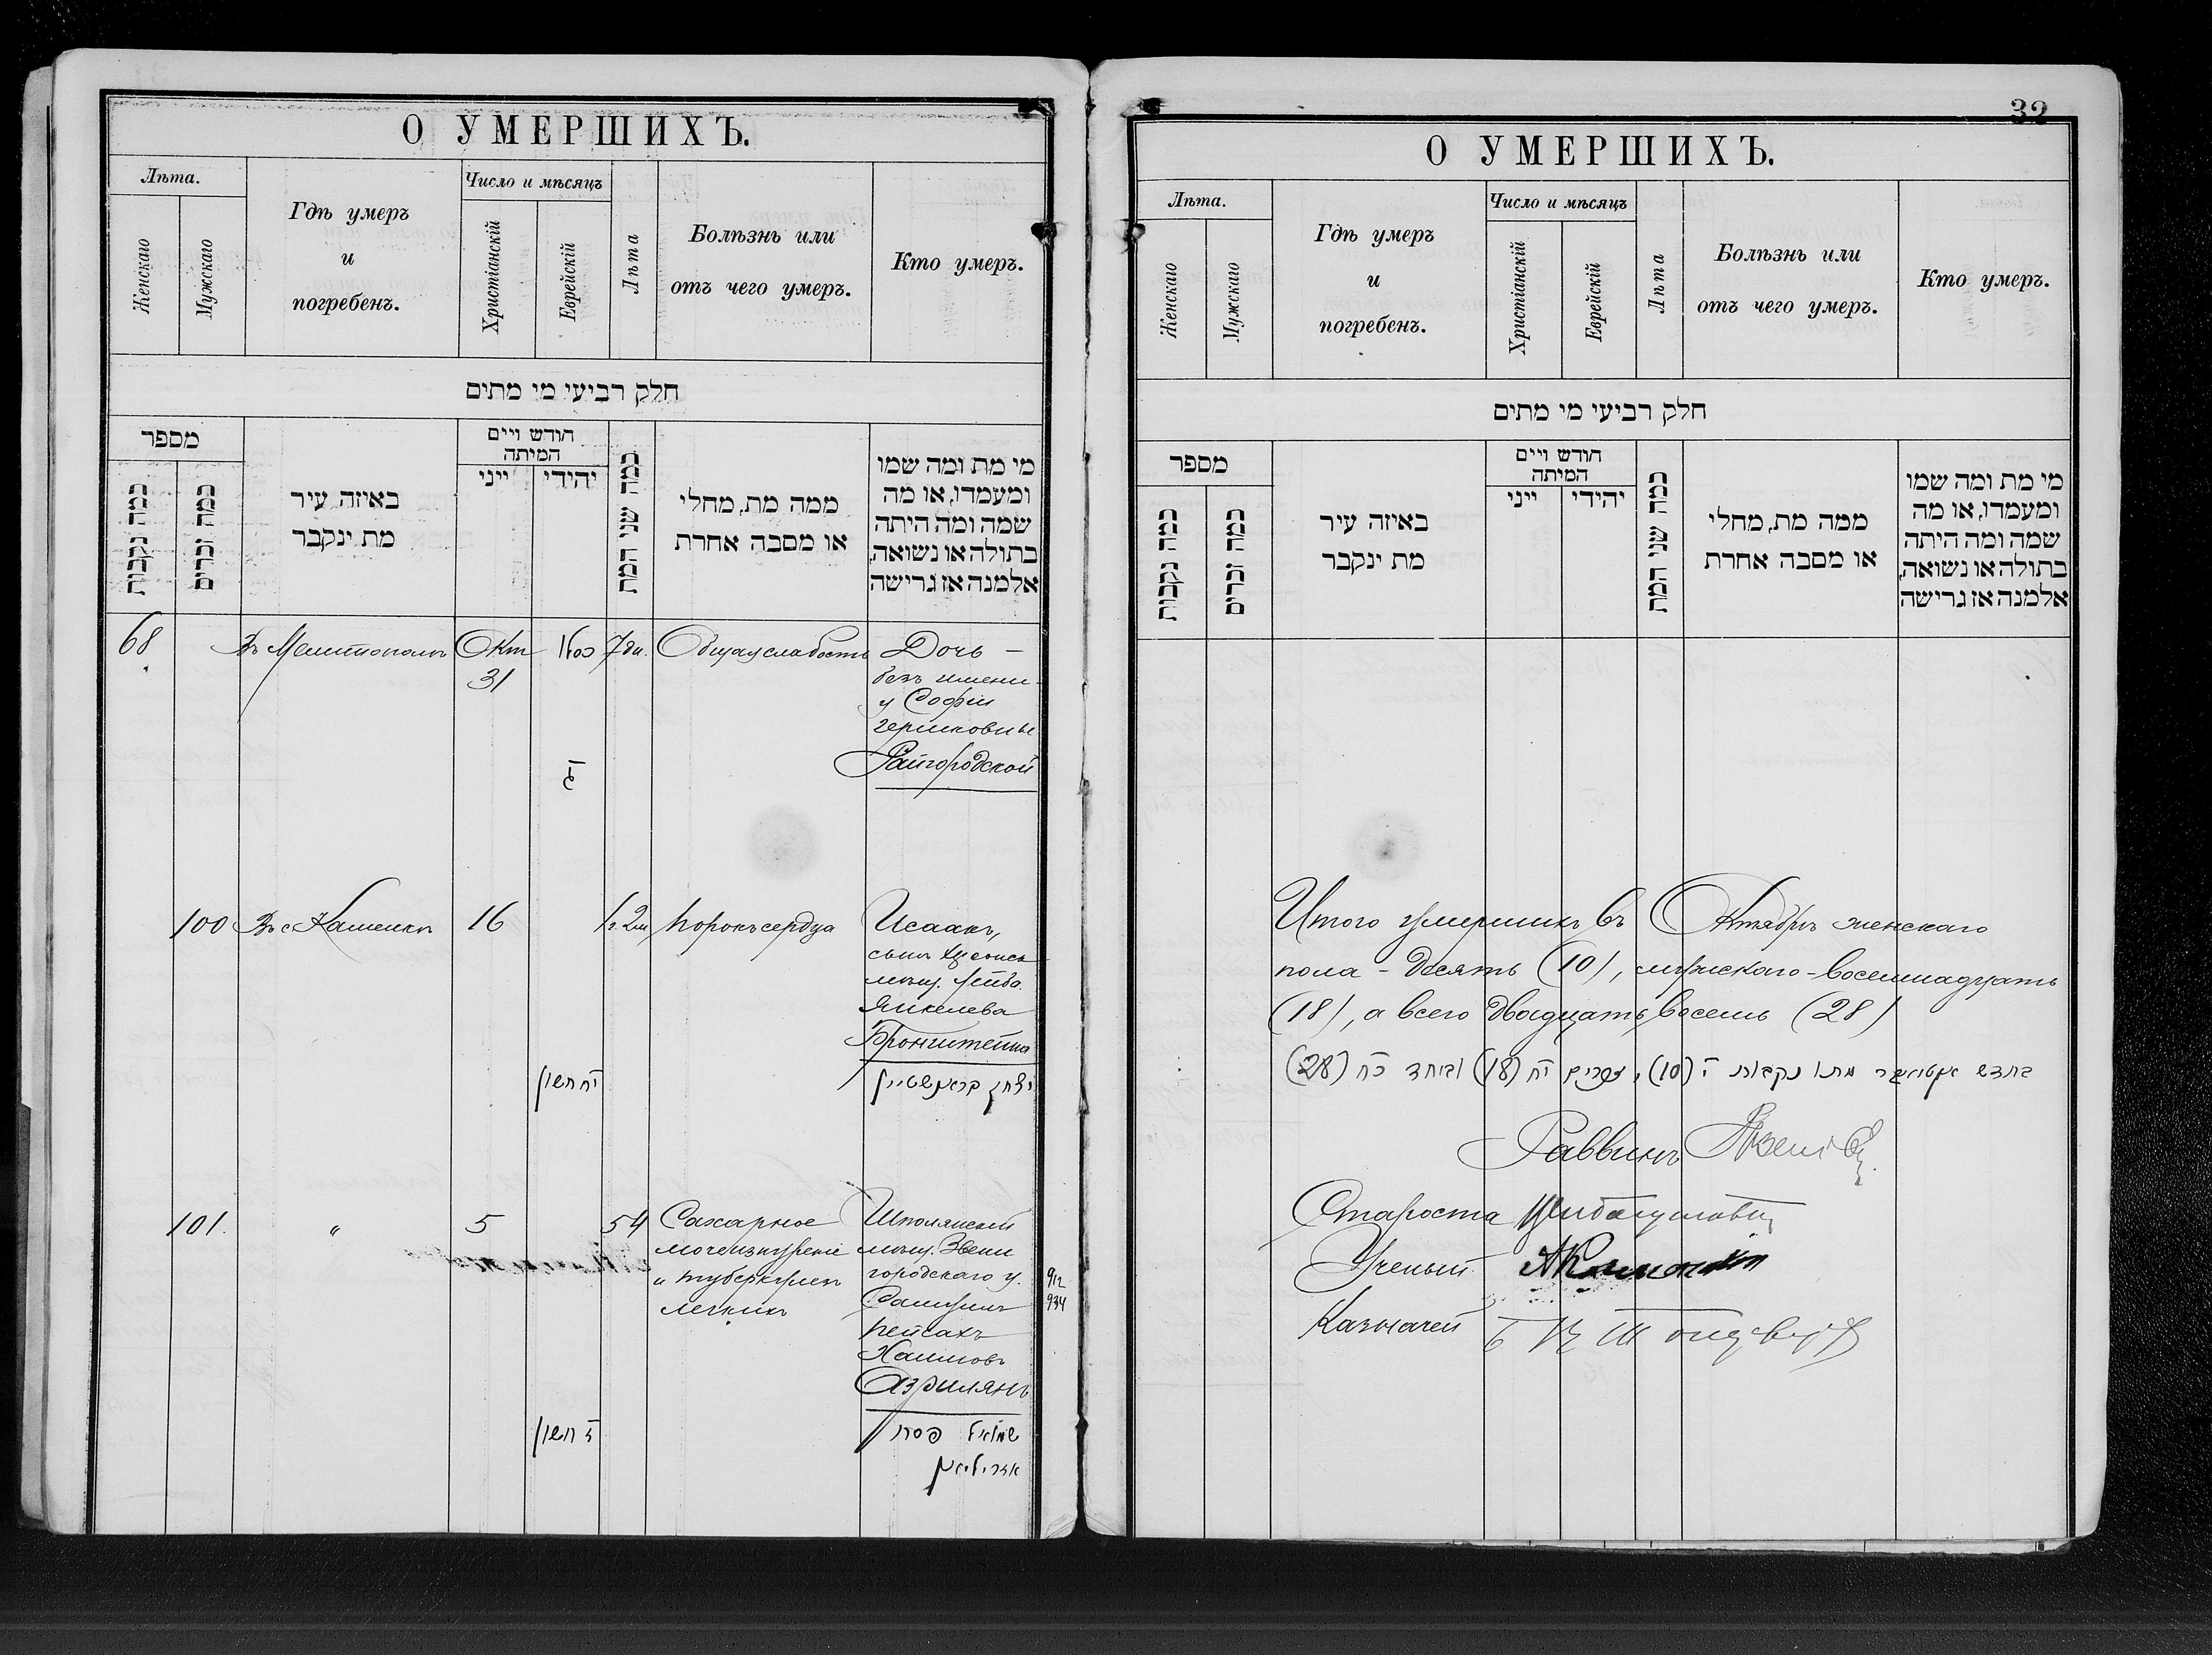 О УМЕРШИХЪ.
Лѣта.
Женскаго
Мужскаго
Гдѣ умеръ
и
погребенъ.
Число и мѣсяцъ
Христіанскій
Еврейскій
Лѣта
Болѣзнь или
отъ чего умеръ.
Кто умеръ.
חלק רביעי מי מתים
מספר
כמה נקבות
כמה זכרים
באיזה עיר
מת ינקבר
חודש ויים
המיתה
ייני
יהידי
כמה שני המת
ממה מת, מחלי
או מסבה אחרת
מי מת ומה שמו
ומעמדו, או מה
שמה ומה היתה
בתולה או נשואה,
אלמנה אז גרישה
68
Въ Мелитополѣ
Окт
31
כסלו
ג
7 дн.
Общая слабость
Дочь –
безъ имени
у Софіи
Гершковны
Райгородской
100
Въ с Каменкѣ
16
יח חשון
1 г. 2 м
Порокъ сердца
Исаакъ,
сынъ
мѣщ. Лейба
Янкелева
Бронштейна
יצחק בראנשטיין
101.
"
5
ז חשון
54
Сахарное
мочеизнуреніе
и туберкулезъ
легкихъ
Шполянскій
мѣщ. Звени
городскаго у.
Самуилъ
Пейсахъ
Хаимовъ
Азрилянъ
שמואל פסח
אזריליאן
912
934
32
О УМЕРШИХЪ.
Лѣта.
Женскаго
Мужскаго
Гдѣ умеръ
и
погребенъ.
Число и мѣсяцъ
Христіанскій
Еврейскій
Лѣта
Болѣзнь или
отъ чего умеръ.
Кто умеръ.
חלק רביעי מי מתים
מספר
כמה נקבות
כמה זכרים
באיזה עיר
מת ינקבר
חודש ויים
המיתה
ייני
יהידי
כמה שני המת
ממה מת, מחלי
או מסבה אחרת
מי מת ומה שמו
ומעמדו, או מה
שמה ומה היתה
בתולה או נשואה,
אלמנה אז גרישה
Итого умершихъ въ Октябрѣ женскаго
пола – десять (10), мужскаго – восемнадцать
(18), а всего двадцать восемь (28)
בחדש אקטאבר מתו נקבות י (10), זכרים יח (18) וביחד כח (28)
Раввинъ
Староста
Ученый
Казначей